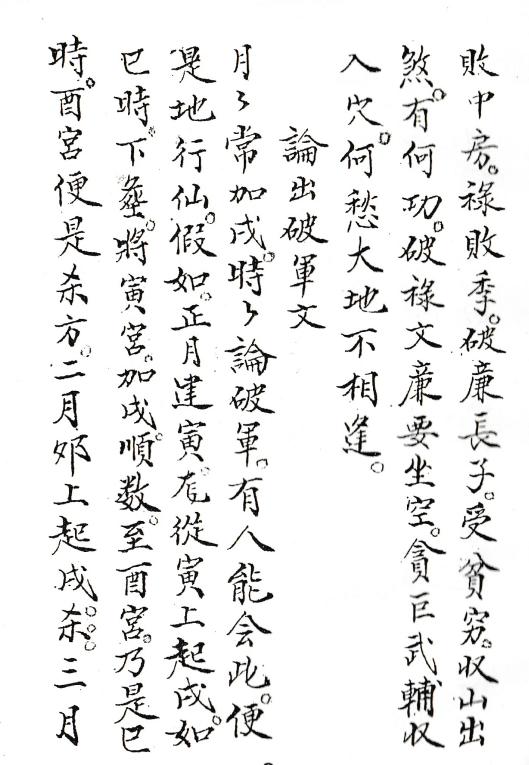 敗中房。祿敗季。破廉長子。受貧穷。收山出
煞。有何功。破祿文廉要坐空。貪巨武輔収
入穴。何愁大地不相逢。
論出破軍文
月〻常加戌。時〻論破軍。有人能会此。便
是地行仙。假如。正月建寅。凢從寅上起戌。如
巳時。下塟。將寅宮。加戌順数。至酉宮。乃是巳
時。酉宮便是杀方。二月夘上起戌。杀。三月